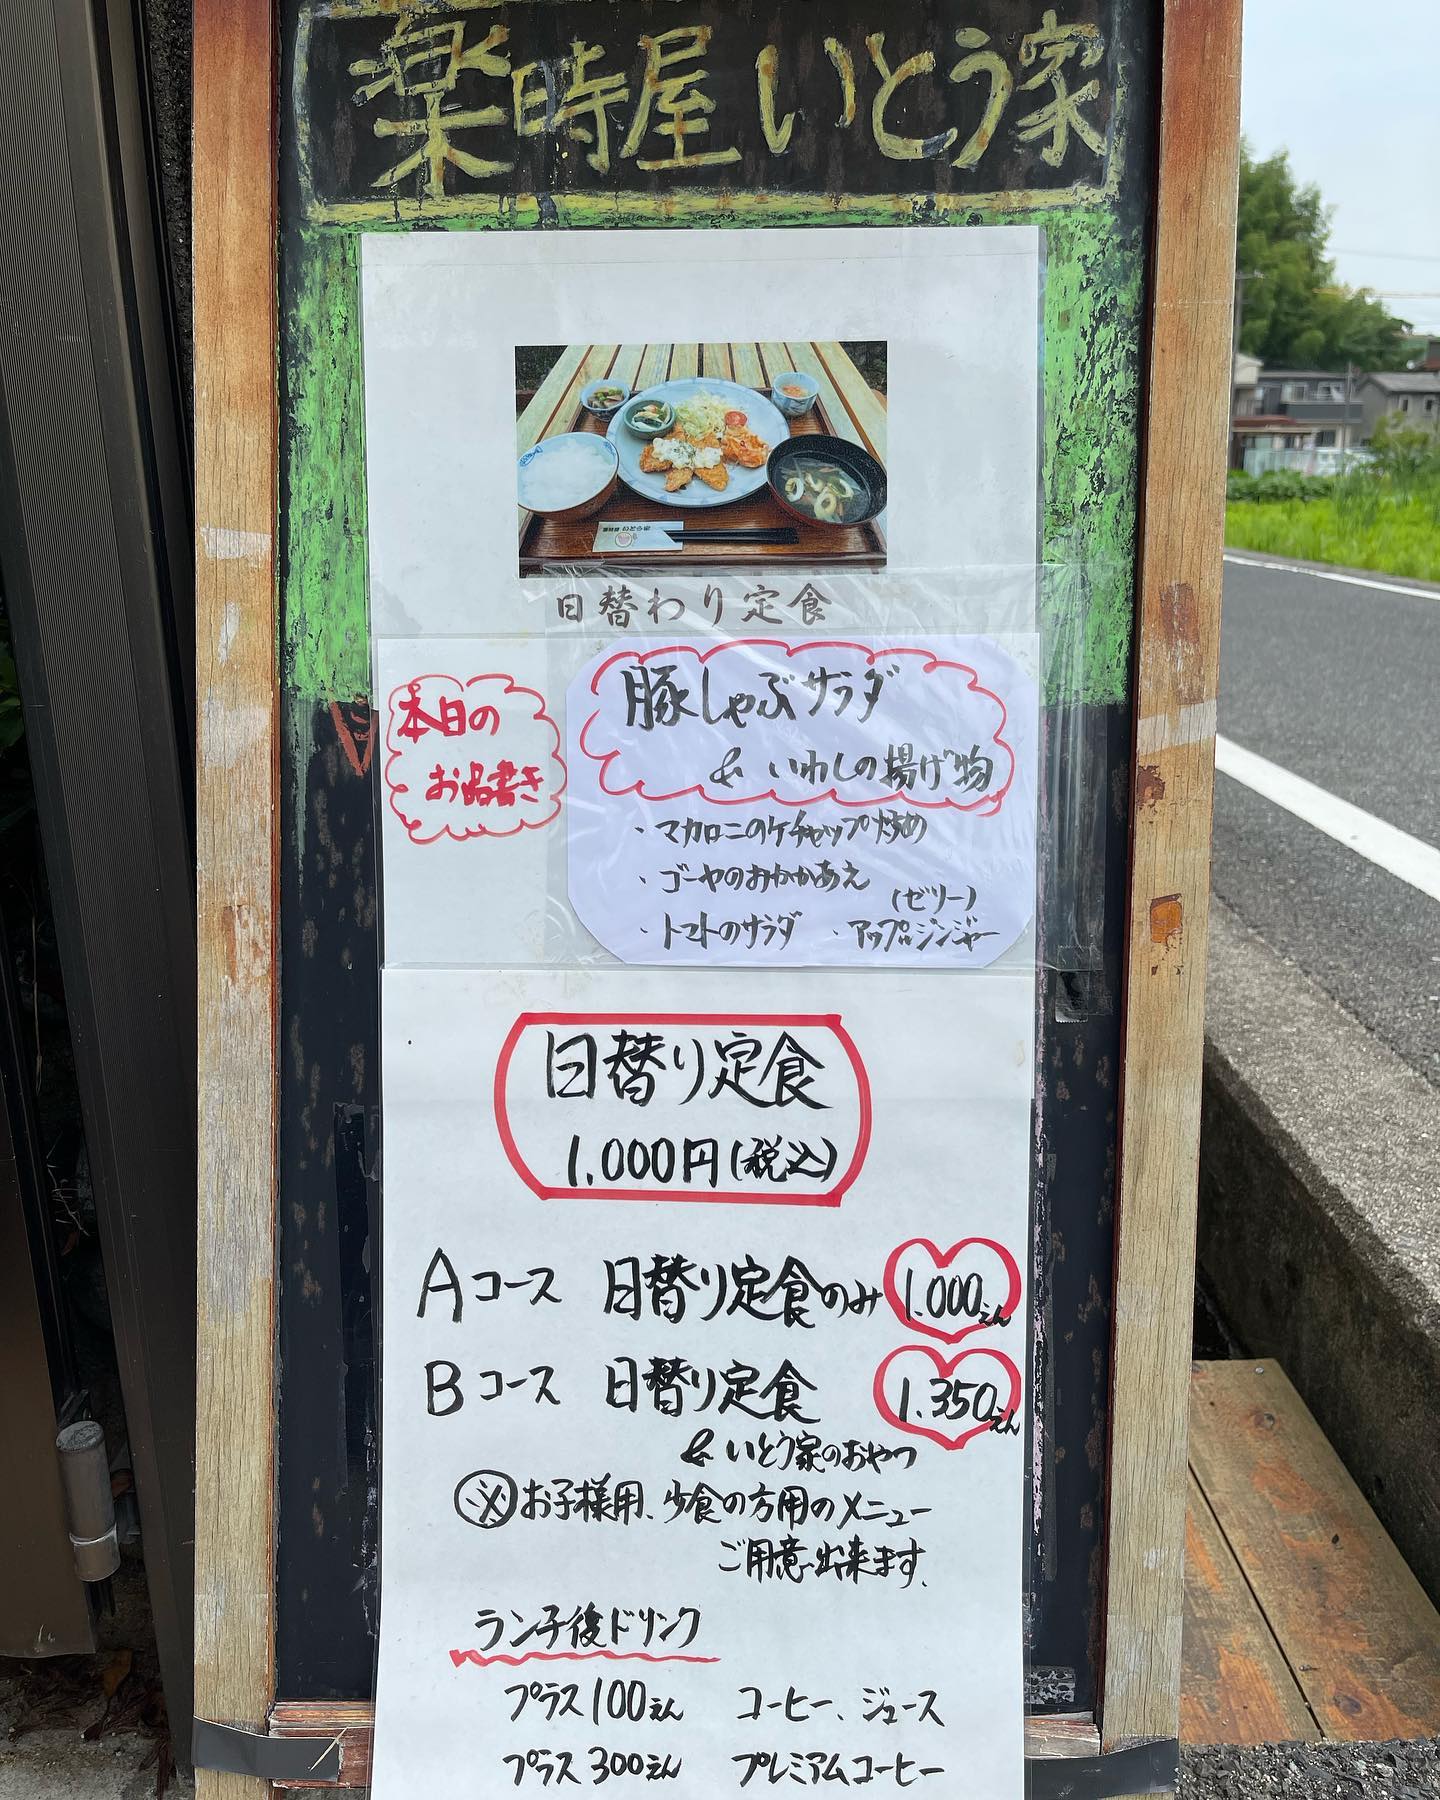 楽時屋 いとう家
日替わり定食
本日の
お品書き
豚しゃぶサラダ
& いわしの揚げ物
・マカロニのケチャップ炒め
・ゴーヤのおかかあえ
(ゼリー)
・トマトのサラダ ・アップルジンジャー
日替り定食
1.000円(税込)
Aコース 日替り定食のみ 1.000えん
Bコース 日替り定食 1.350えん
& いとう家のおやつ
※お子様用、少食の方用のメニュー
ご用意出来ます。
ランチ後ドリンク
プラス100えん コーヒー、ジュース
プラス300えん プレミアムコーヒー